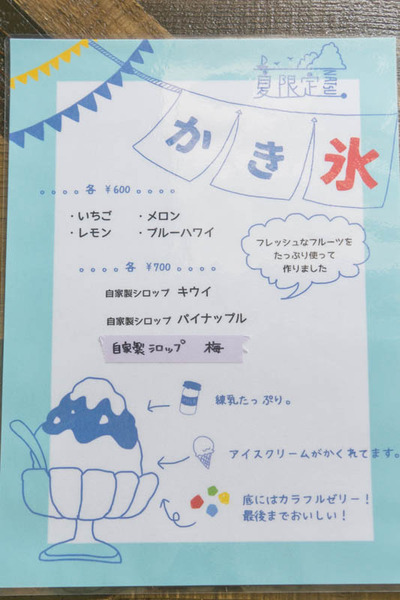 夏限定
NATSU
かき氷
各 ¥600
・いちご ・メロン
・レモン ・ブルーハワイ
フレッシュなフルーツを
たっぷり使って
作りました
各 ¥700
自家製シロップ キウイ
自家製シロップ パイナップル
自家製シロップ 梅
練乳たっぷり。
アイスクリームがかくれてます。
底にはカラフルゼリー！
最後までおいしい！